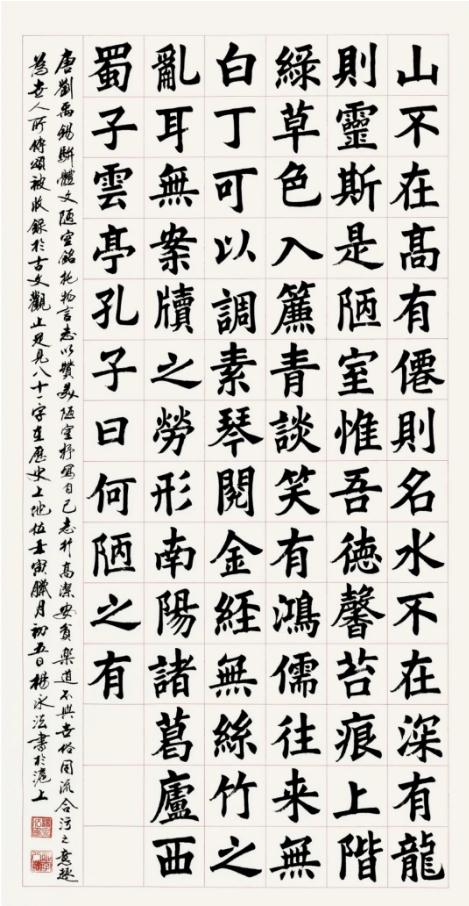 山不在高有僊則名水不在深有龍
則靈斯是陋室惟吾德馨苔痕上階
綠草色入簾青談笑有鴻儒往来無
白丁可以調素琴閱金経無絲竹之
亂耳無案牘之勞形南陽諸葛廬西
蜀子雲亭孔子曰何陋之有
唐劉禹錫駢體文陋室銘托物言志以贊美陋室抒寫自己志行高潔安貧樂道不與世俗同流合污之意趣
為世人所傳頌被收録於古文觀止足見八十一字在歷史上地位壬寅臘月初五日楊永法書於滬上